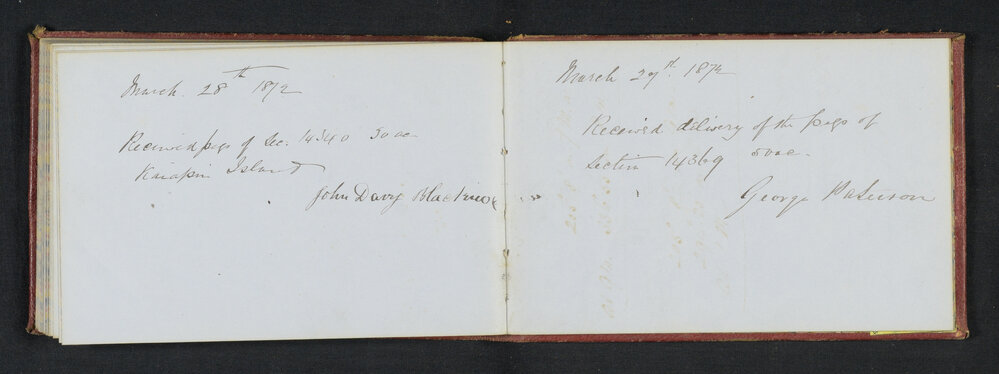 March. 28th 1872
Received pegs of Sec. 14340 50 ac
Island
John Davy
March 29th. 1872
Received delivery of the pegs of
Section 14369 50 ac.
George Paterson